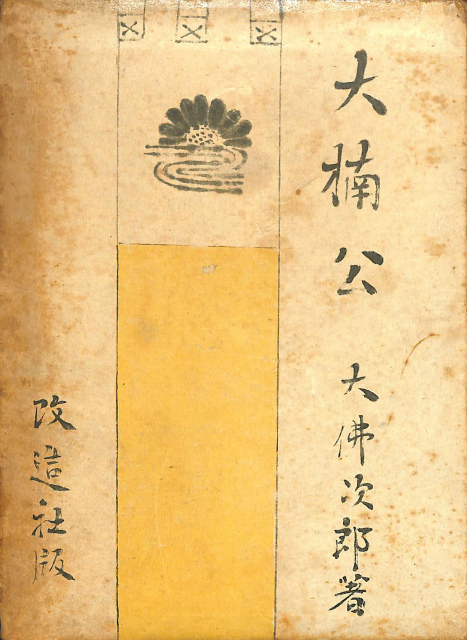 大楠公
大佛次郎著
改造社版